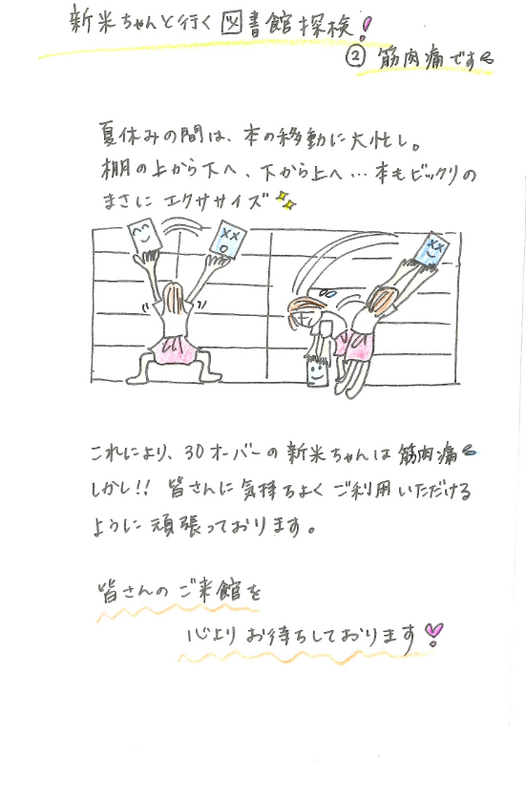 新米ちゃんと行く図書館探検!
② 筋肉痛です
夏休みの間は、本の移動に大忙し。
棚の上から下へ、下から上へ…本もビックリの
まさにエクササイズ
これにより、30オーバーの新米ちゃんは筋肉痛
しかし!! 皆さんに気持ちよくご利用いただける
ように頑張っております。
皆さんのご来館を
心よりお待ちしております